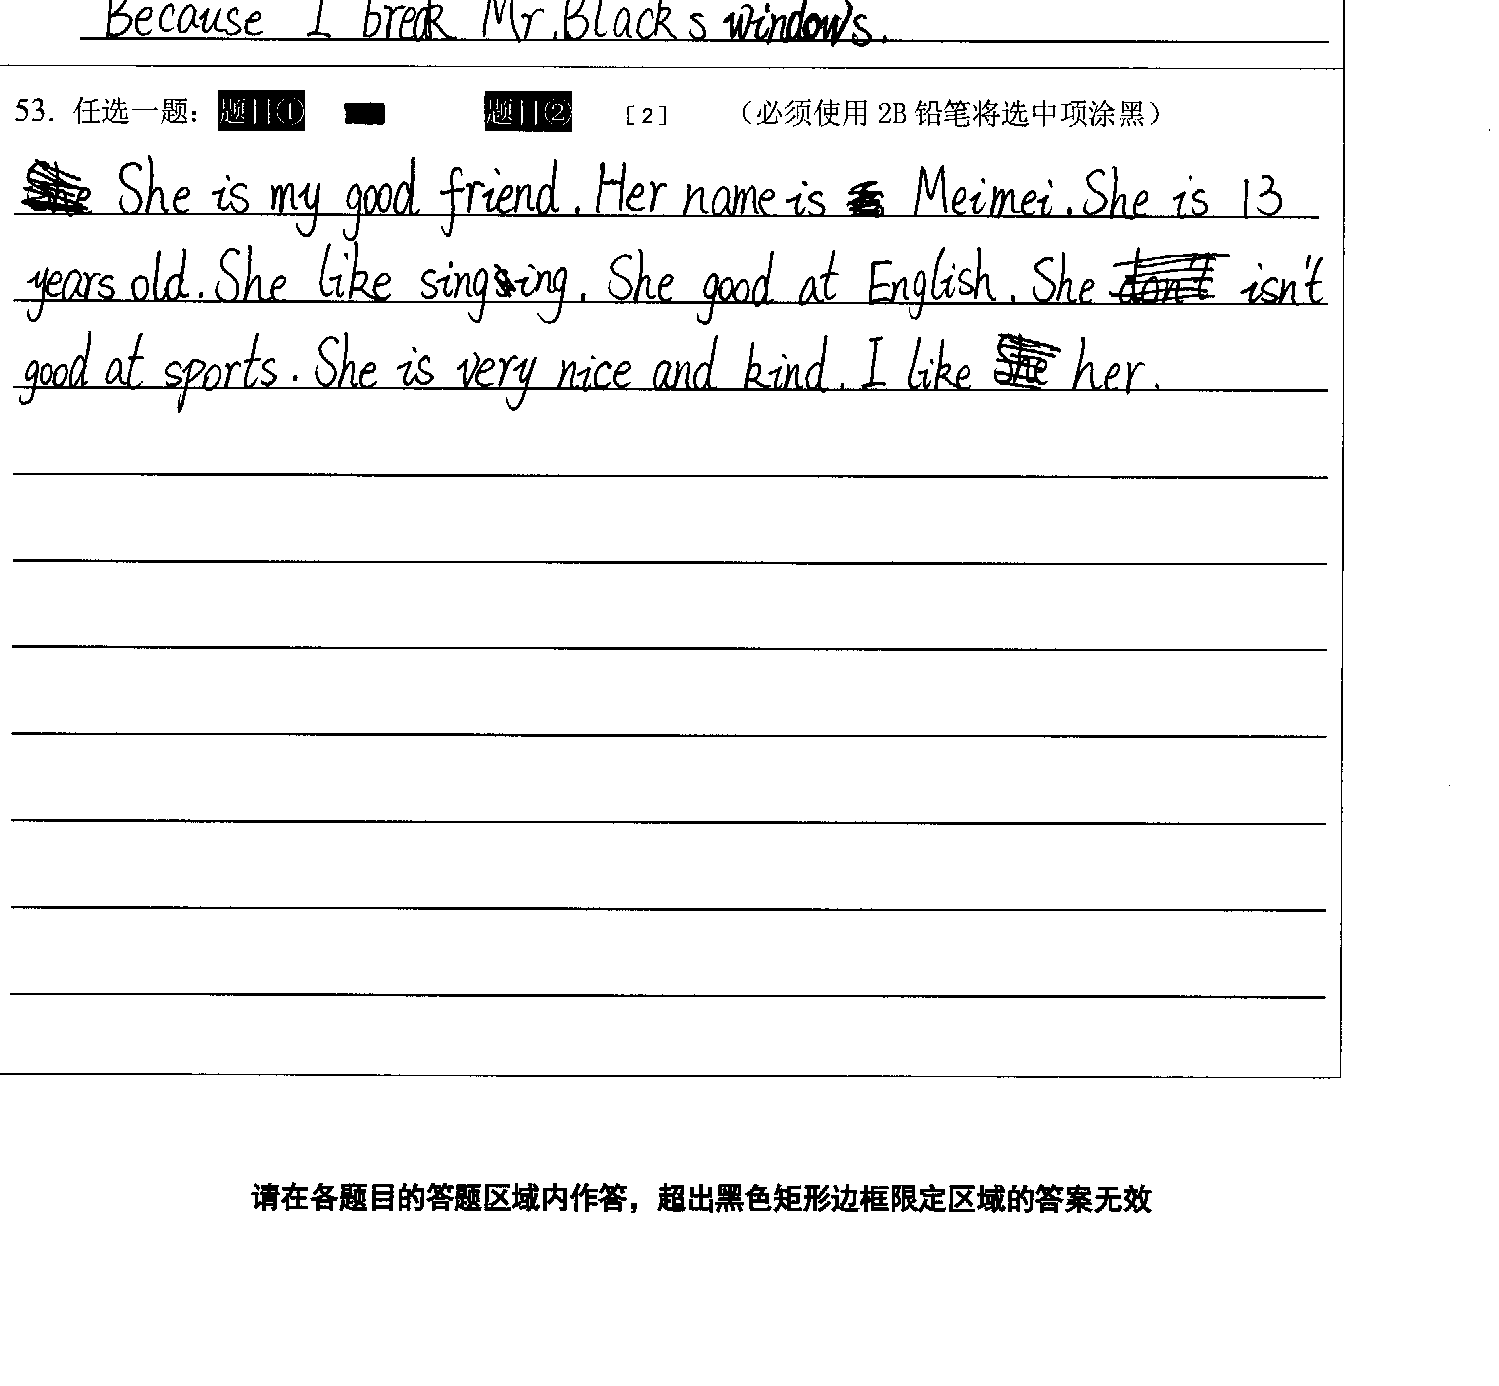 Because I break Mr.Blacks windows.
53. 任选一题： 题目① 题目② [2] （必须使用 2B 铅笔将选中项涂黑）
She is my good friend. Her name is Meimei. She is 13
years old. She like singing. She good at English. She isn't
good at sports. She is very nice and kind. I like her.
请在各题目的答题区域内作答，超出黑色矩形边框限定区域的答案无效